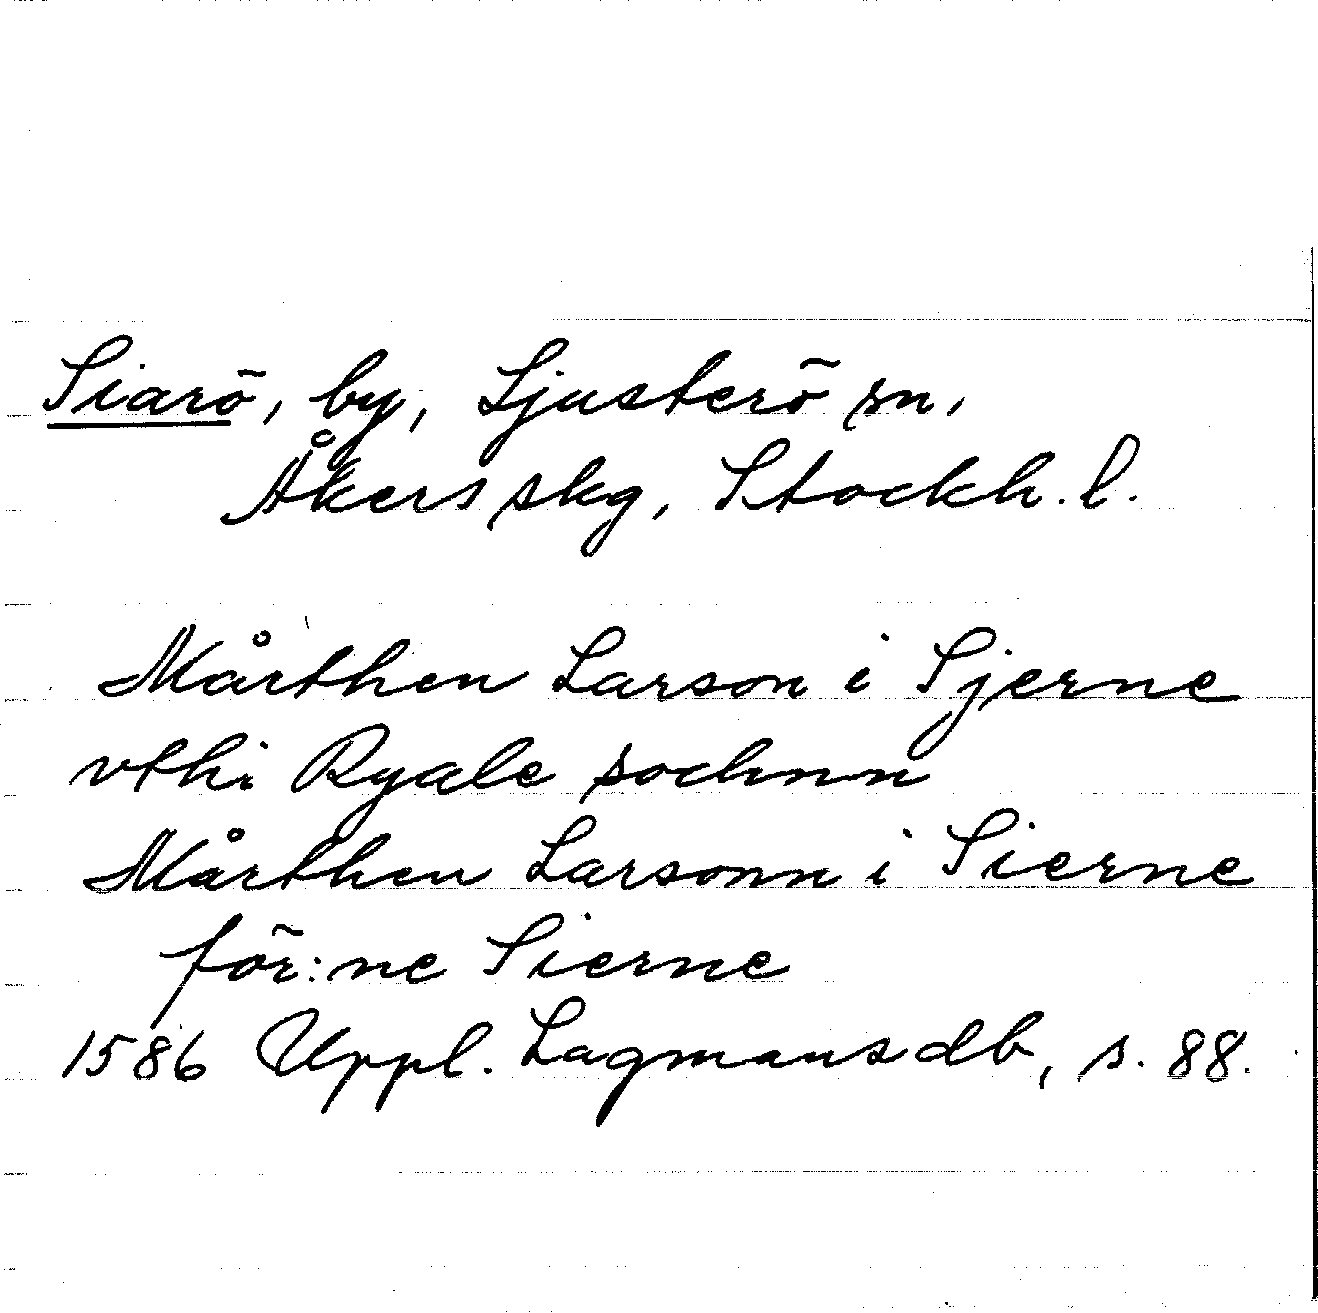 Siarö, by, Ljusterö sn,
Åkers skg, Stockh. l.
Mårthen Larson i Sjerne
vthi Ryale sochnn
Mårthen Larsonn i Sierne
för:ne Sierne
1586 Uppl. Lagmansdb, s. 88.